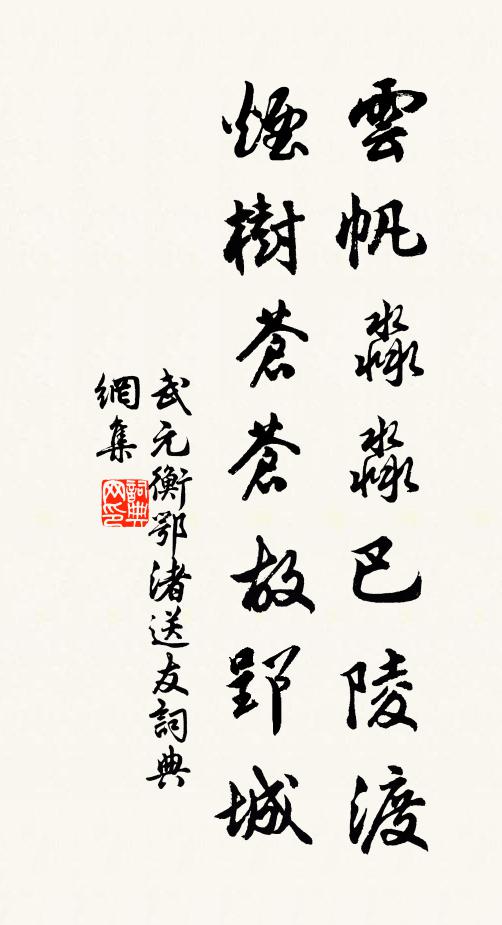 雲帆淼淼巴陵渡
煙樹蒼蒼故郢城
武元衡鄂渚送友詞典
網集
詞典網印